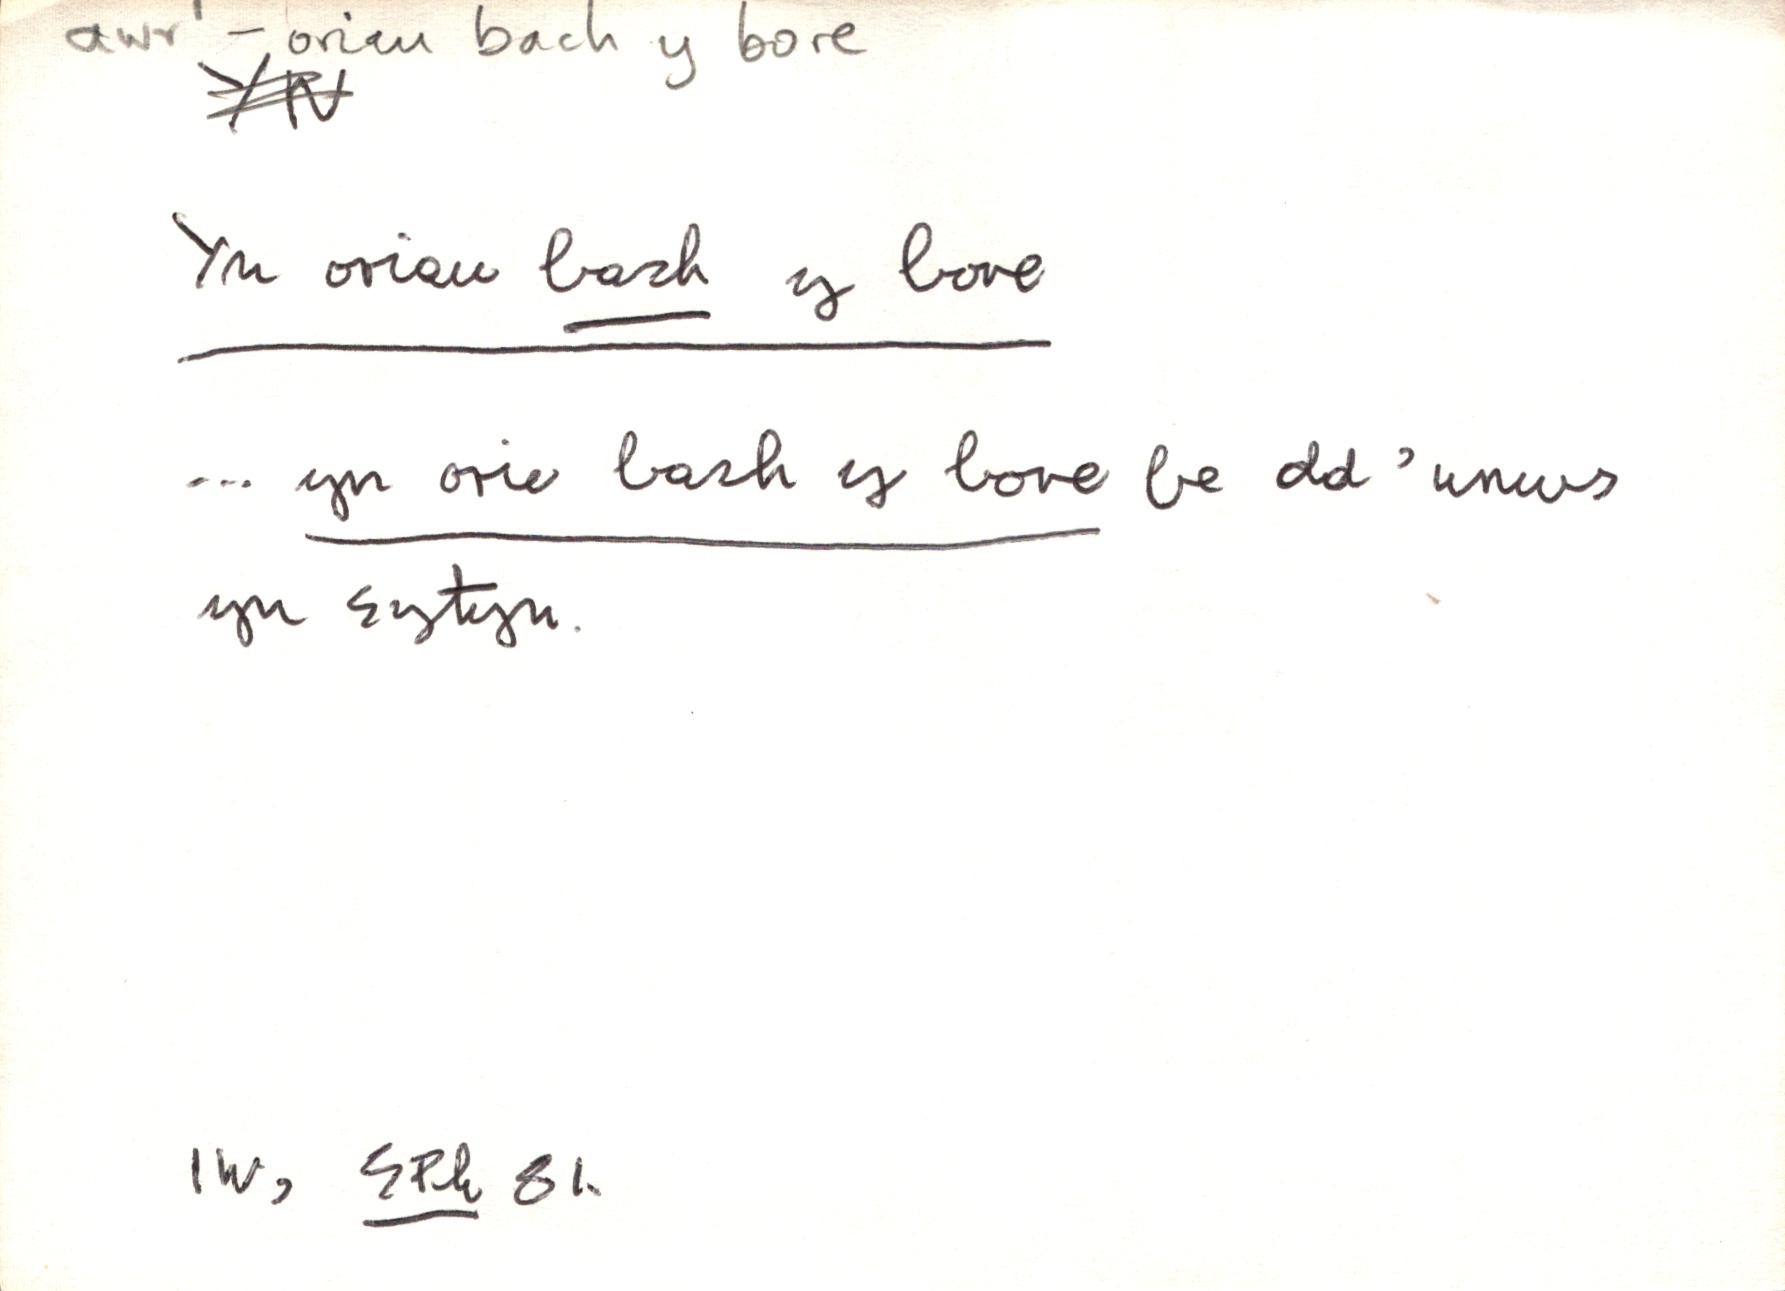 awr¹ - oriau bach y bore
YN
Yn oriau bach y bore
... yn orie bach y bore fe dd'unws
yn sytyn.
IW, SPh 81.